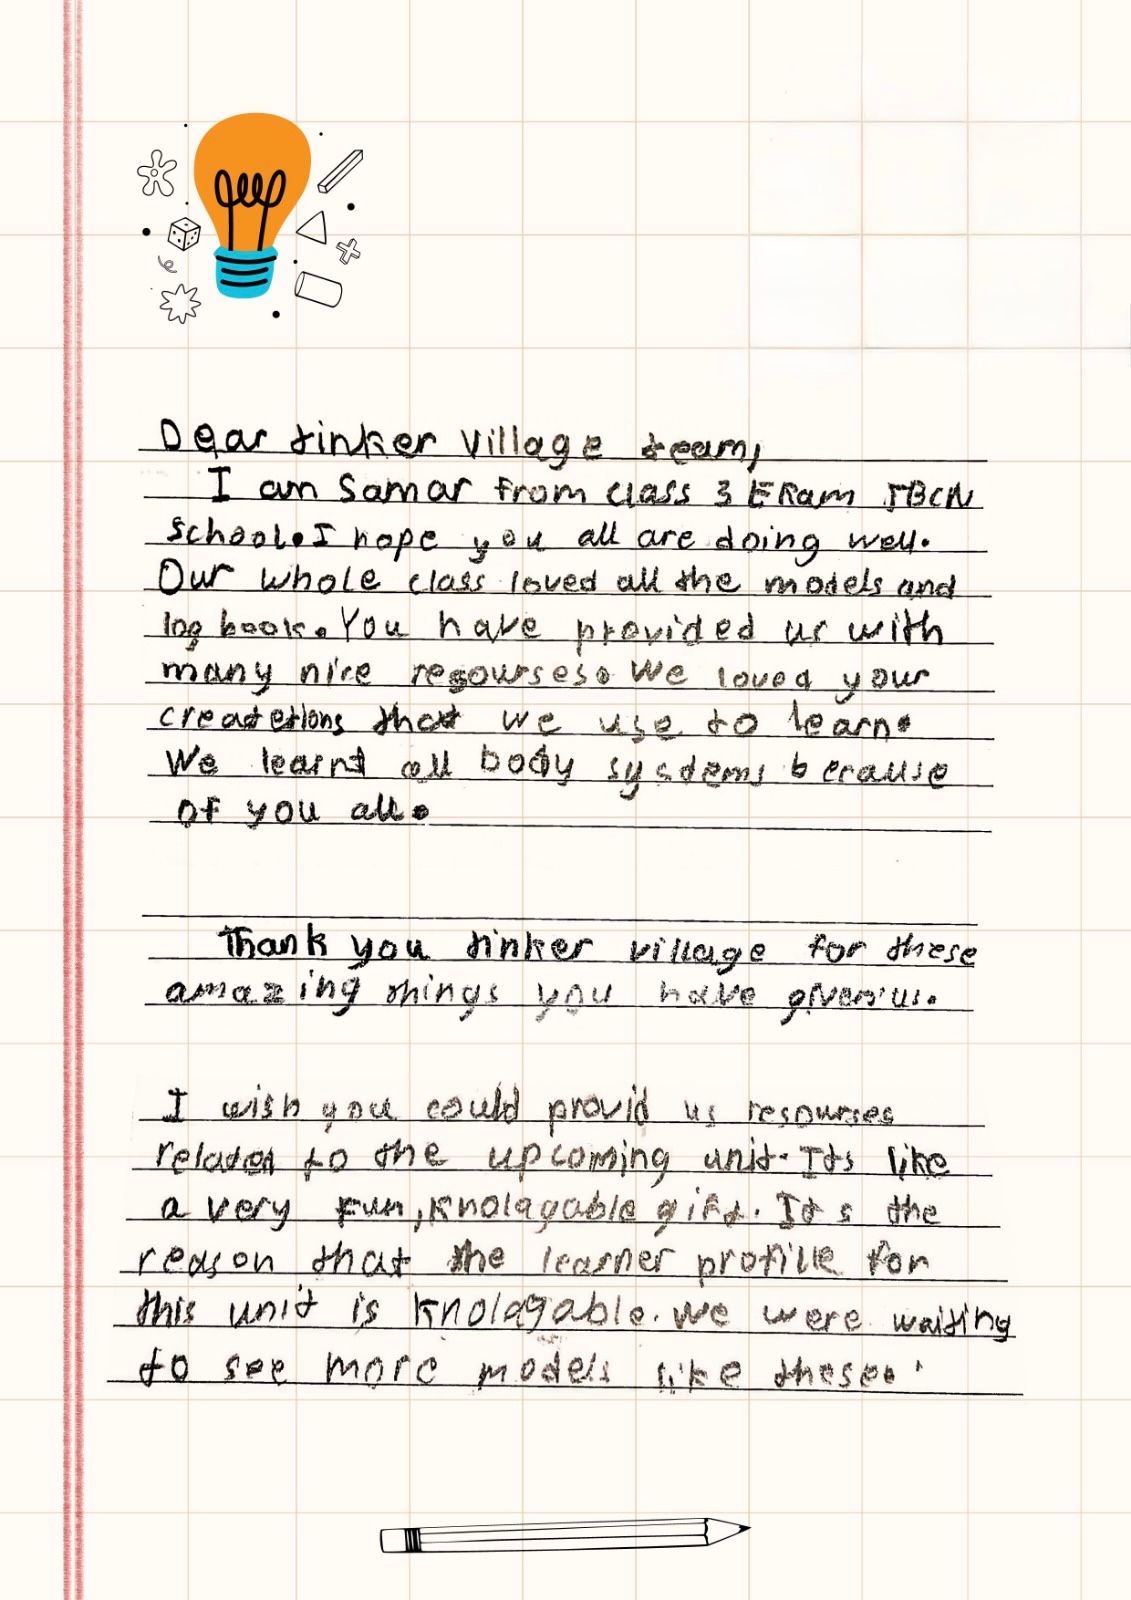 Dear tinker Village team,
I am Samar from class 3 E from JBCN
school. I hope you all are doing well.
Our whole class loved all the models and
log book. You have provided us with
many nice resourses. We loved your
that we use to learn.
We learnt all body systems because
of you all.
Thank you tinker village for these
amazing things you have given us.
I wish you could provid us resourses
related to the upcoming unit. Its like
a very fun, knolagable gift. It s the
reason that the learner profile for
this unit is knolagable. we were waiting
to see more models like these.